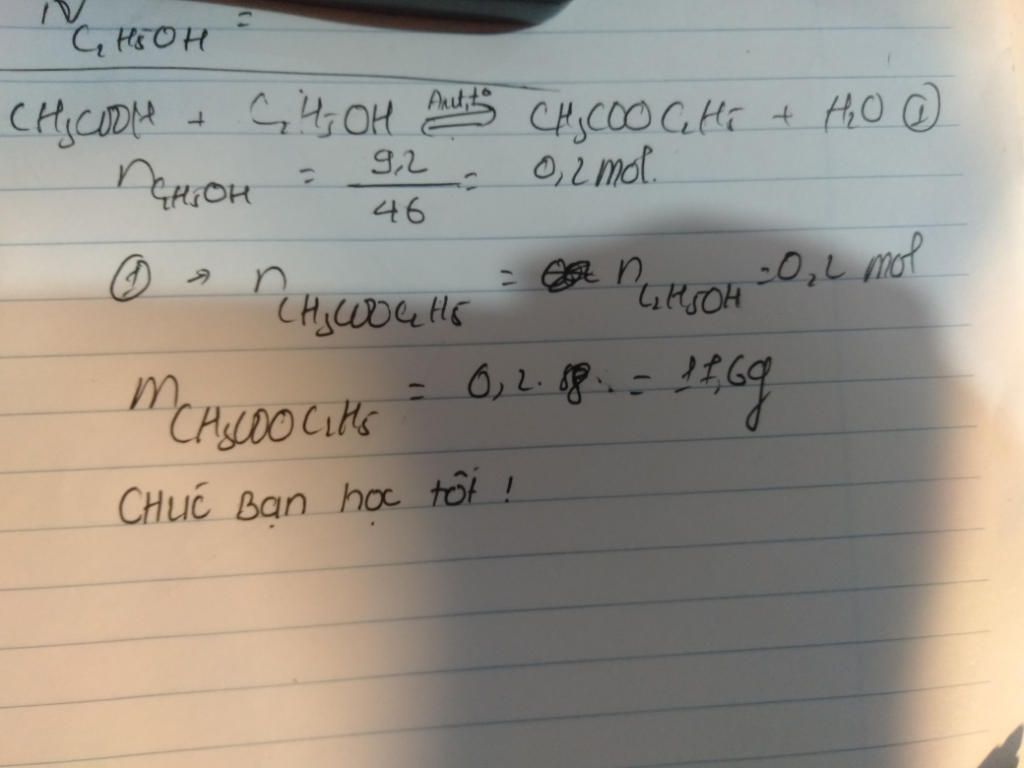 n C₂H₅OH =
CH₃COOH + C₂H₅OH ⇌ CH₃COOC₂H₅ + H₂O ①
n C₂H₅OH = 9,2 / 46 = 0,2 mol.
① → n CH₃COOC₂H₅ = n C₂H₅OH = 0,2 mol
m CH₃COOC₂H₅ = 0,2 . = 17,6g
CHÚC Bạn học tốt !